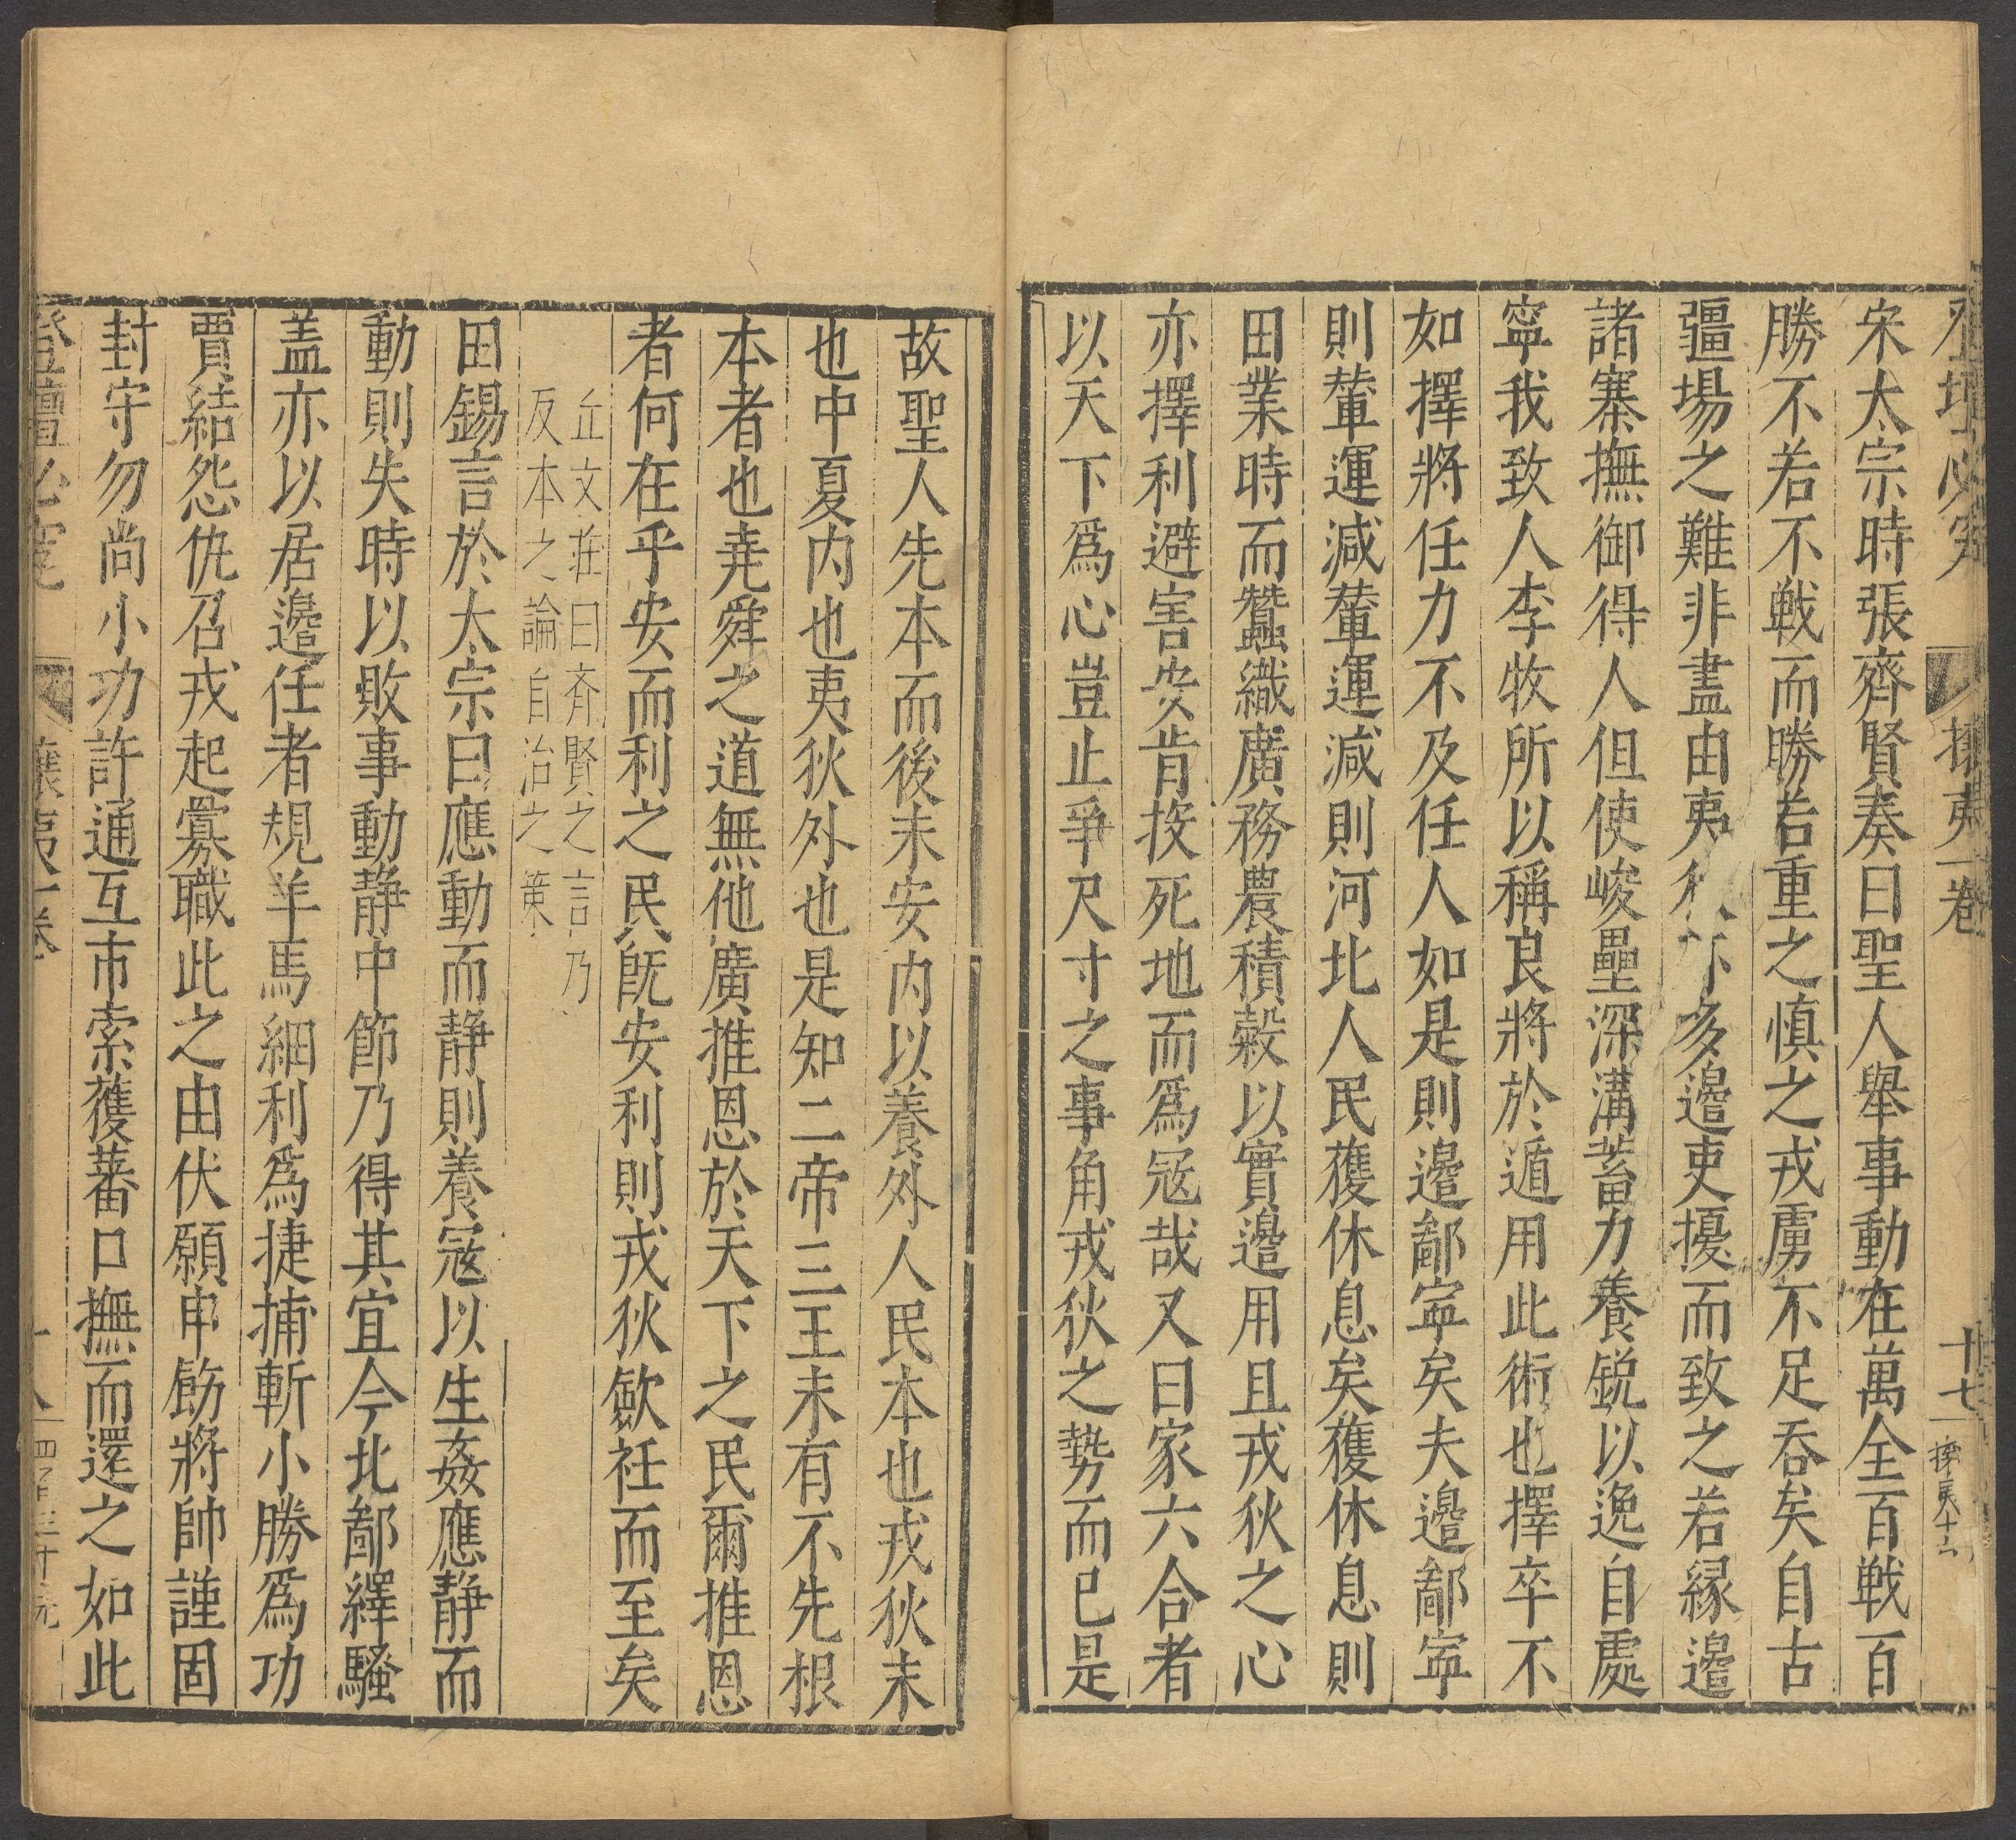 登壇必究 攘夷一卷 十七 攘夷十六
宋太宗時張齊賢奏曰聖人舉事動在萬全百戰百
勝不若不戰而勝若重之慎之戎虜不足吞矣自古
疆場之難非盡由夷亦多邊吏擾而致之若緣邊
諸寨撫御得人但使峻壘深溝蓄力養銳以逸自處
寧我致人李牧所以稱良將於遁用此術也擇卒不
如擇將任力不及任人如是則邊鄙寧矣夫邊鄙寧
則輦運減輦運減則河北人民獲休息矣獲休息則
田業時而蠶織廣務農積穀以實邊用且戎狄之心
亦擇利避害安肯投死地而爲冦哉又曰家六合者
以天下爲心豈止爭尺寸之事角戎狄之勢而已是
故聖人先本而後末安内以養外人民本也戎狄末
也中夏内也夷狄外也是知二帝三王未有不先根
本者也堯舜之道無他廣推恩於天下之民爾推恩
者何在乎安而利之民旣安利則戎狄歛衽而至矣
丘文莊曰齊賢之言乃
反本之論自治之策
田錫言於太宗曰應動而静則養冦以生姦應静而
動則失時以敗事動静中節乃得其宜今北鄙繹騷
盖亦以居邊任者規羊馬細利爲捷捕斬小勝爲功
賈結怨仇召戎起釁職此之由伏願申飭將帥謹固
封守勿尚小功許通互市索獲蕃口撫而還之如此
登壇必究 攘夷一卷 十八